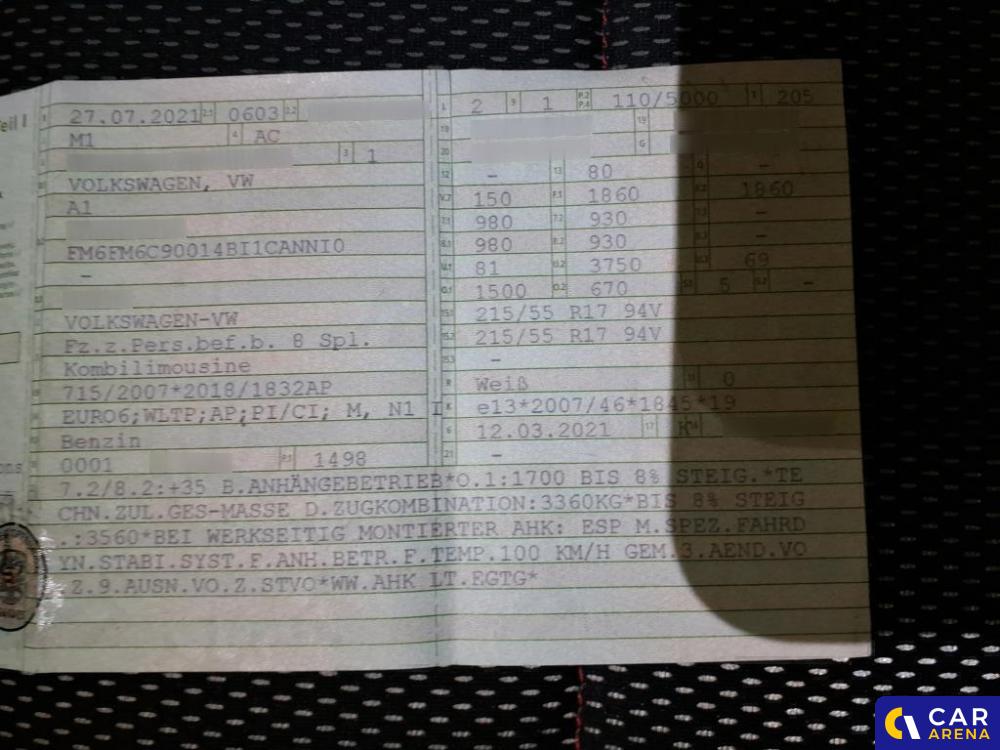 27.07.2021 0603
M1 AC
1
VOLKSWAGEN, VW
A1
FM6FM6C90014BI1CANNI0
–
VOLKSWAGEN-VW
Fz.z.Pers.bef.b. 8 Spl.
Kombilimousine
715/2007*2018/1832AP
EURO6;WLTP;AP;PI/CI; M, N1 I
Benzin
0001 1498
2 1 110/5000 205
– 80 –
150 1860 1860
980 930 –
980 930 –
81 3750 69
1500 670 5 –
215/55 R17 94V
215/55 R17 94V
–
Weiß 0
e13*2007/46*1845*19
12.03.2021 K
–
7.2/8.2:+35 B.ANHÄNGEBETRIEB*O.1:1700 BIS 8% STEIG.*TE
CHN.ZUL.GES-MASSE D.ZUGKOMBINATION:3360KG*BIS 8% STEIG
.:3560*BEI WERKSEITIG MONTIERTER AHK: ESP M.SPEZ.FAHRD
YN.STABI.SYST.F.ANH.BETR.F.TEMP.100 KM/H GEM.3.AEND.VO
.Z.9.AUSN.VO.Z.STVO*WW.AHK LT.EGTG*
CAR
ARENA